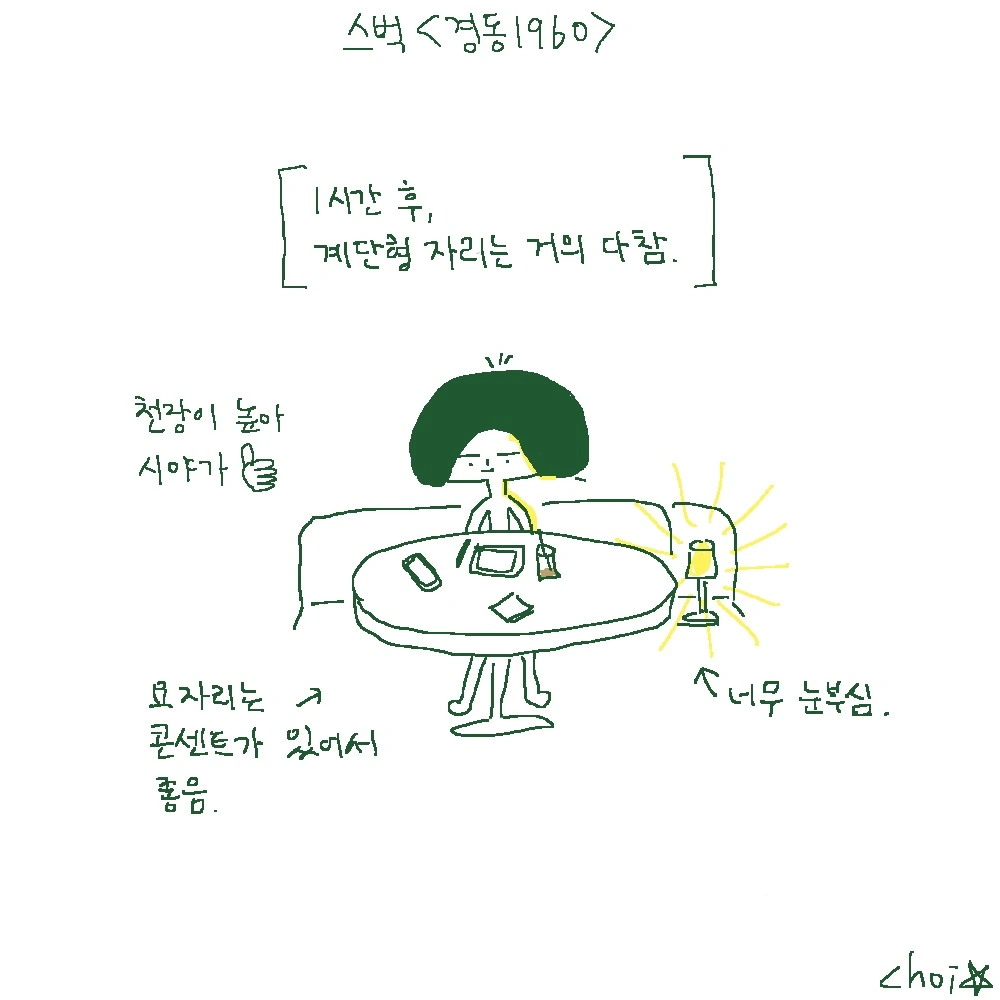 스벅 <경동1960>
1시간 후,
계단형 자리는 거의 다참.
천장이 높아
시야가
요자리는
콘센트가 있어서
좋음.
너무 눈부심.
choi